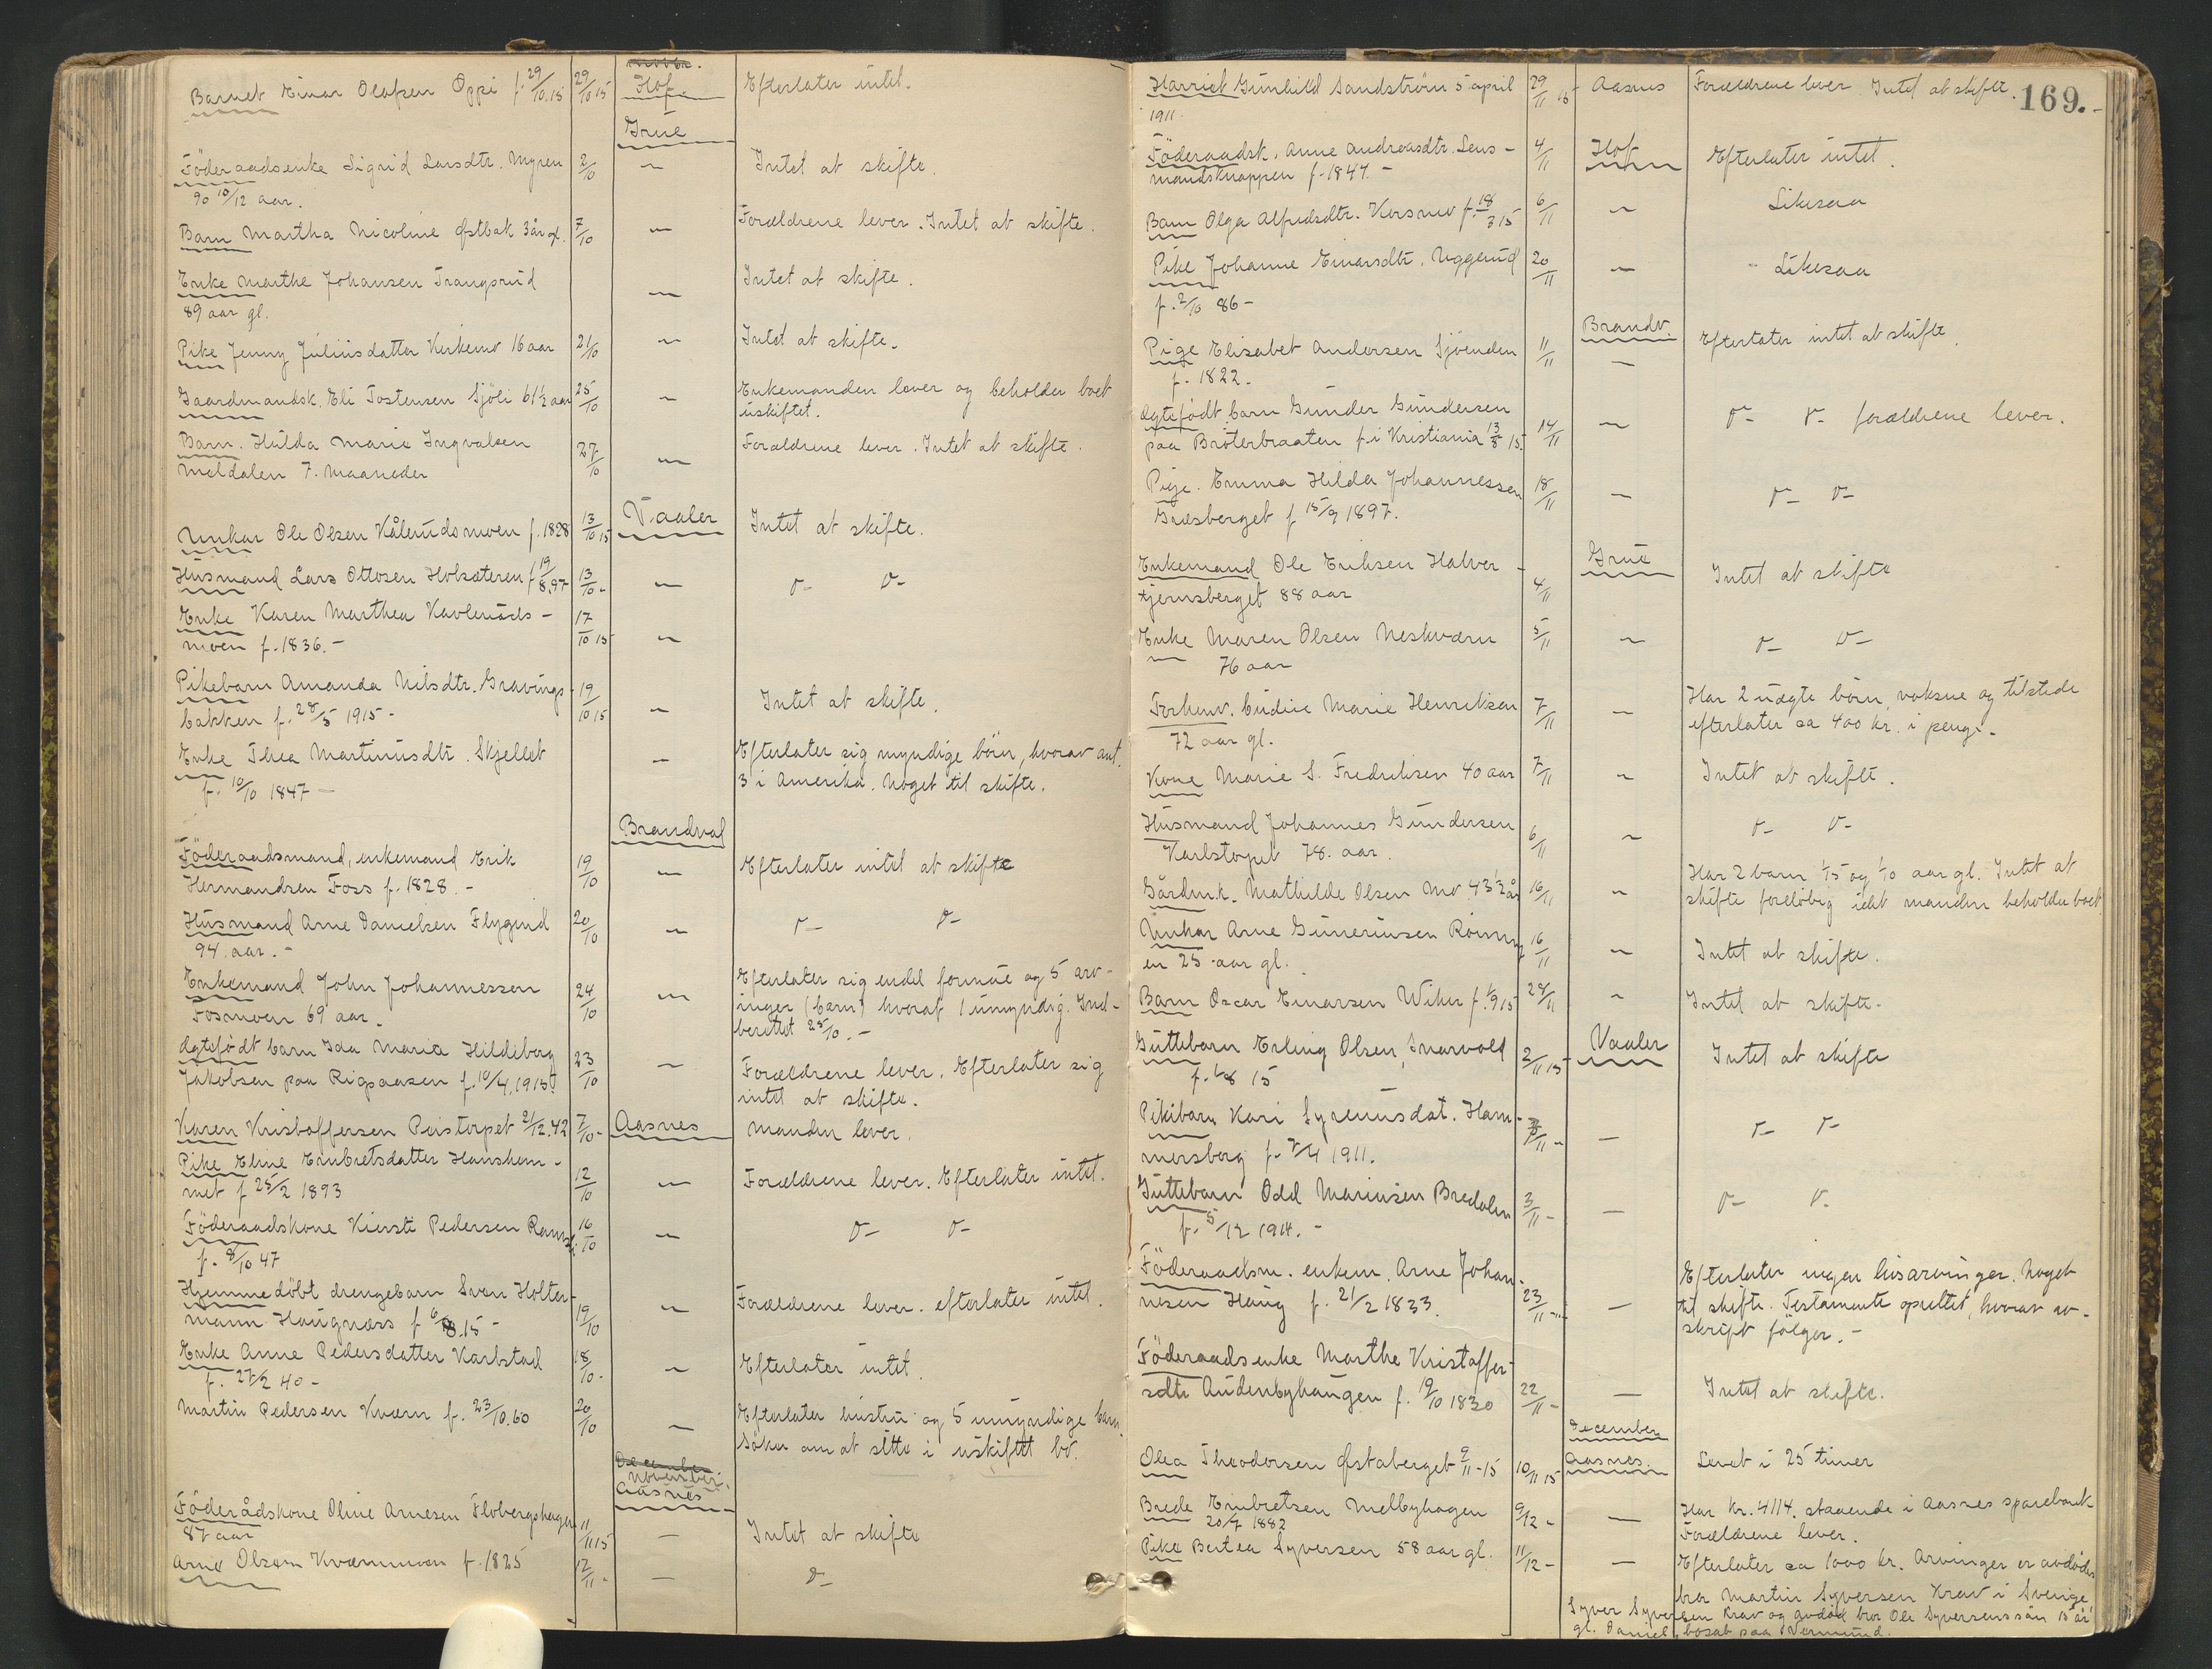 Barnet Einar Olafsen Oppi f. 29/10.15 29/10 15 Hof. Efterlater intet.
Grue
Föderaadsenke Sigrid Larsdtr. Myren 2/10 " Intet at skifte.
90 10/12 aar.
Barn Martha Nicoline Østbak 3 år gl. 7/10 " Forældrene lever. Intet at skifte.
Enke Marthe Johansen Trangsrud " Intet at skifte.
89 aar gl.
Pike Jenny Juliusdatter Kirkemo 16 aar 21/10 " Intet at skifte.
Gaardmandsk. Eli Tostensen Sjöli 61 1/2 aar 25/10 " Enkemanden lever og beholder boet
uskiftet.
Barn. Hilda Marie Ingvalsen 27/10 " Forældrene lever. Intet at skifte.
Meldalen 7. Maaneder
Vaaler
Unkar Ole Olsen Kålerudsmoen f. 1828 13/10 15 Intet at skifte.
Husmand Lars Ottosen Holsæteren f 19/8.97 13/10- " v- v-
Enke Karen Marthea Kavleruds- 17/10 15 "
moen f. 1836.-
Pikebarn Amanda Nilsdtr. Gravings- 19/10 15 " Intet at skifte.
bakken f. 28/5 1915-
Enke Thea Martinusdtr. Skjellet " Efterlater sig myndige börn, hvorav ant.
f. 10/10 1847- 3 i Amerika. Noget til skifte.
Brandval
Föderaadsmand, enkemand Erik 19/10 " Efterlater intet at skifte
Hermandsen Foss f. 1828.-
Husmand Arne Danielsen Flygind 20/10 " v- v-
94 aar.-
Enkemand John Johannessen 24/10 " Efterlater sig endel formue og 5 arv-
Fosmoen 69 aar. inger (barn) hvoraf 1 umyndig. Ind-
berettet 25/10.-
Ægtefödt barn Ida Maria Hildeborg 23/10 " Forældrene lever. Efterlater sig
Jakobsen paa Rigsaasen f. 10/4.1915. intet at skifte.
Karen Kristoffersen Peistorpet 21/12.42 7/10- Aasnes Manden lever.
Pike Eline Embretsdatter Hanshem- 12/10 " Forældrene lever. Efterlater intet.
met f 25/2 1893
Föderaadskone Kiersti Pedersen 16/10 " v- v-
f. 8/10 47
Hjemmedöbt drengebarn Sven Holter- 19/10 " Forældrene lever. efterlater intet.
mann Haugnæss f 6/8.15-
Enke Anne Pedersdatter Karlstad 18/10. " Efterlater intet.
f. 27/2 40-
Martin Pedersen Kværn f. 23/10.60 20/10 " Efterlater hustru og 5 umyndige barn.
Söker om at sitte i uskiftet bo.
December
November.
Aasnes
Föderådskone Oline Arnesen Flobergshagen 11/11 15 - Intet at skifte
87 aar
Arne Olsen Kværnmoen f. 1825 12/11- - v-
169.-
Harriet Gunhild Sandström 5 april 29/11 15 Aasnes Forældrene lever. Intet at skifte.
1911.
Föderaadsk. Anne Andreasdtr. Lens- 4/11 Hof Efterlater intet.
mandsknappen f. 1847.-
Barn Olga Alfredsdtr. f. 18/3 15 6/11 " Likesaa
Pike Johanne Einarsdtr. Uggerud 20/11 " Likesaa
f. 2/10 86-
Brandv.
Pige Elisabet Andersen Sjöenden 11/11 - Efterlater intet at skifte.
f. 1822.
Ægtefödt barn Gunder Gundersen
paa Bröterbraaten f. i Kristiania 13/8 15. 14/11 - v- v- forældrene lever.
Pige. Emma Hilda Johannessen 18/11 - v- v-
Græsberget f 15/9 1897.
Grue
Enkemand Ole Eriksen Halver- Intet at skifte
tjernsberget 88 aar 4/11
Enke Maren Olsen Neskværn 5/11 " v- v-
76 aar
Forhenv. budeie Marie Henriksen 7/11 " Har 2 uægte börn, voksne og tilstede
72 aar gl. efterlater ca 400 kr. i penge.
Kone Marie S. Fredriksen 40 aar 7/11 " Intet at skifte.
Husmand Johannes Gundersen 6/11 " v- v-
Karlstorpet 78. aar.
Gårdmk. Mathilde Olsen Mo 43 1/2 år 16/11 " Har 2 barn 15 og 10 aar gl. Intet at
skifte foreløbig idet manden beholder boet.
Unkar Arne Gunerinsen 16/11 " Intet at skifte.
en 25 aar gl.
Barn Oscar Einarsen Wiker f. 1/9 15 28/11 " Intet at skifte.
Guttebarn Erling Olsen, Snarvold 2/11 15 Vaaler Intet at skifte
f. 1/8 15
Pikebarn Kari Syrenusdat. Ham- /11 - - v- v-
mersberg f. 7/4 1911.
Guttebarn Odd Mariusen Bredalen 3/11- - v- v-
f. 5/12 1914.-
Föderaadsm. enkem. Arne Johan- 23/11 - Efterlater ingen livsarvinger. Noget
nesen Haug f. 21/2 1833. til skifte. Testamente oprettet, hvorav av-
skrift fölger.-
Föderaadsenke Marthe Kristoffer-
sdtr Audenbyhaugen f. 19/10 1830 22/11- - Intet at skifte.
December
Olea Theodorsen Østaberget 9/11-15 10/11 15 Aasnes. Levet i 25 timer
Brede Embretsen Melbyhagen 9/12- - Har kr. 4114. staaende i Aasnes sparebank
20/7 1882 Forældrene lever.
Pike Bertea Syversen 58 aar gl. 11/12- - Efterlater ca 1000 kr. Arvinger er avdødes
bror Martin Syversen Krav i Sverige,
Syver Syversen Krav og avdød bror Ole Syversens sön 15 år
gl. Daniel, bosat paa Vermund.